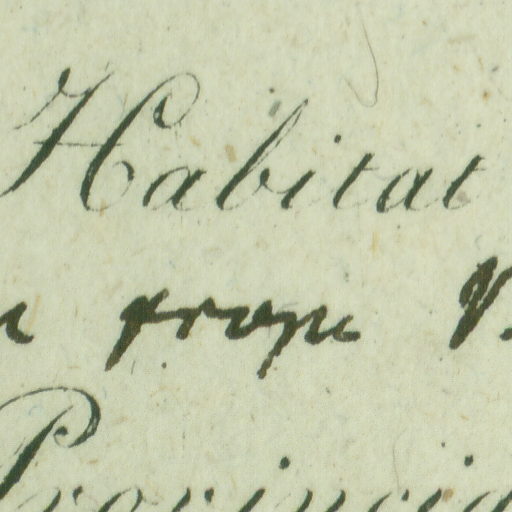 Habitat
prope
Provincia